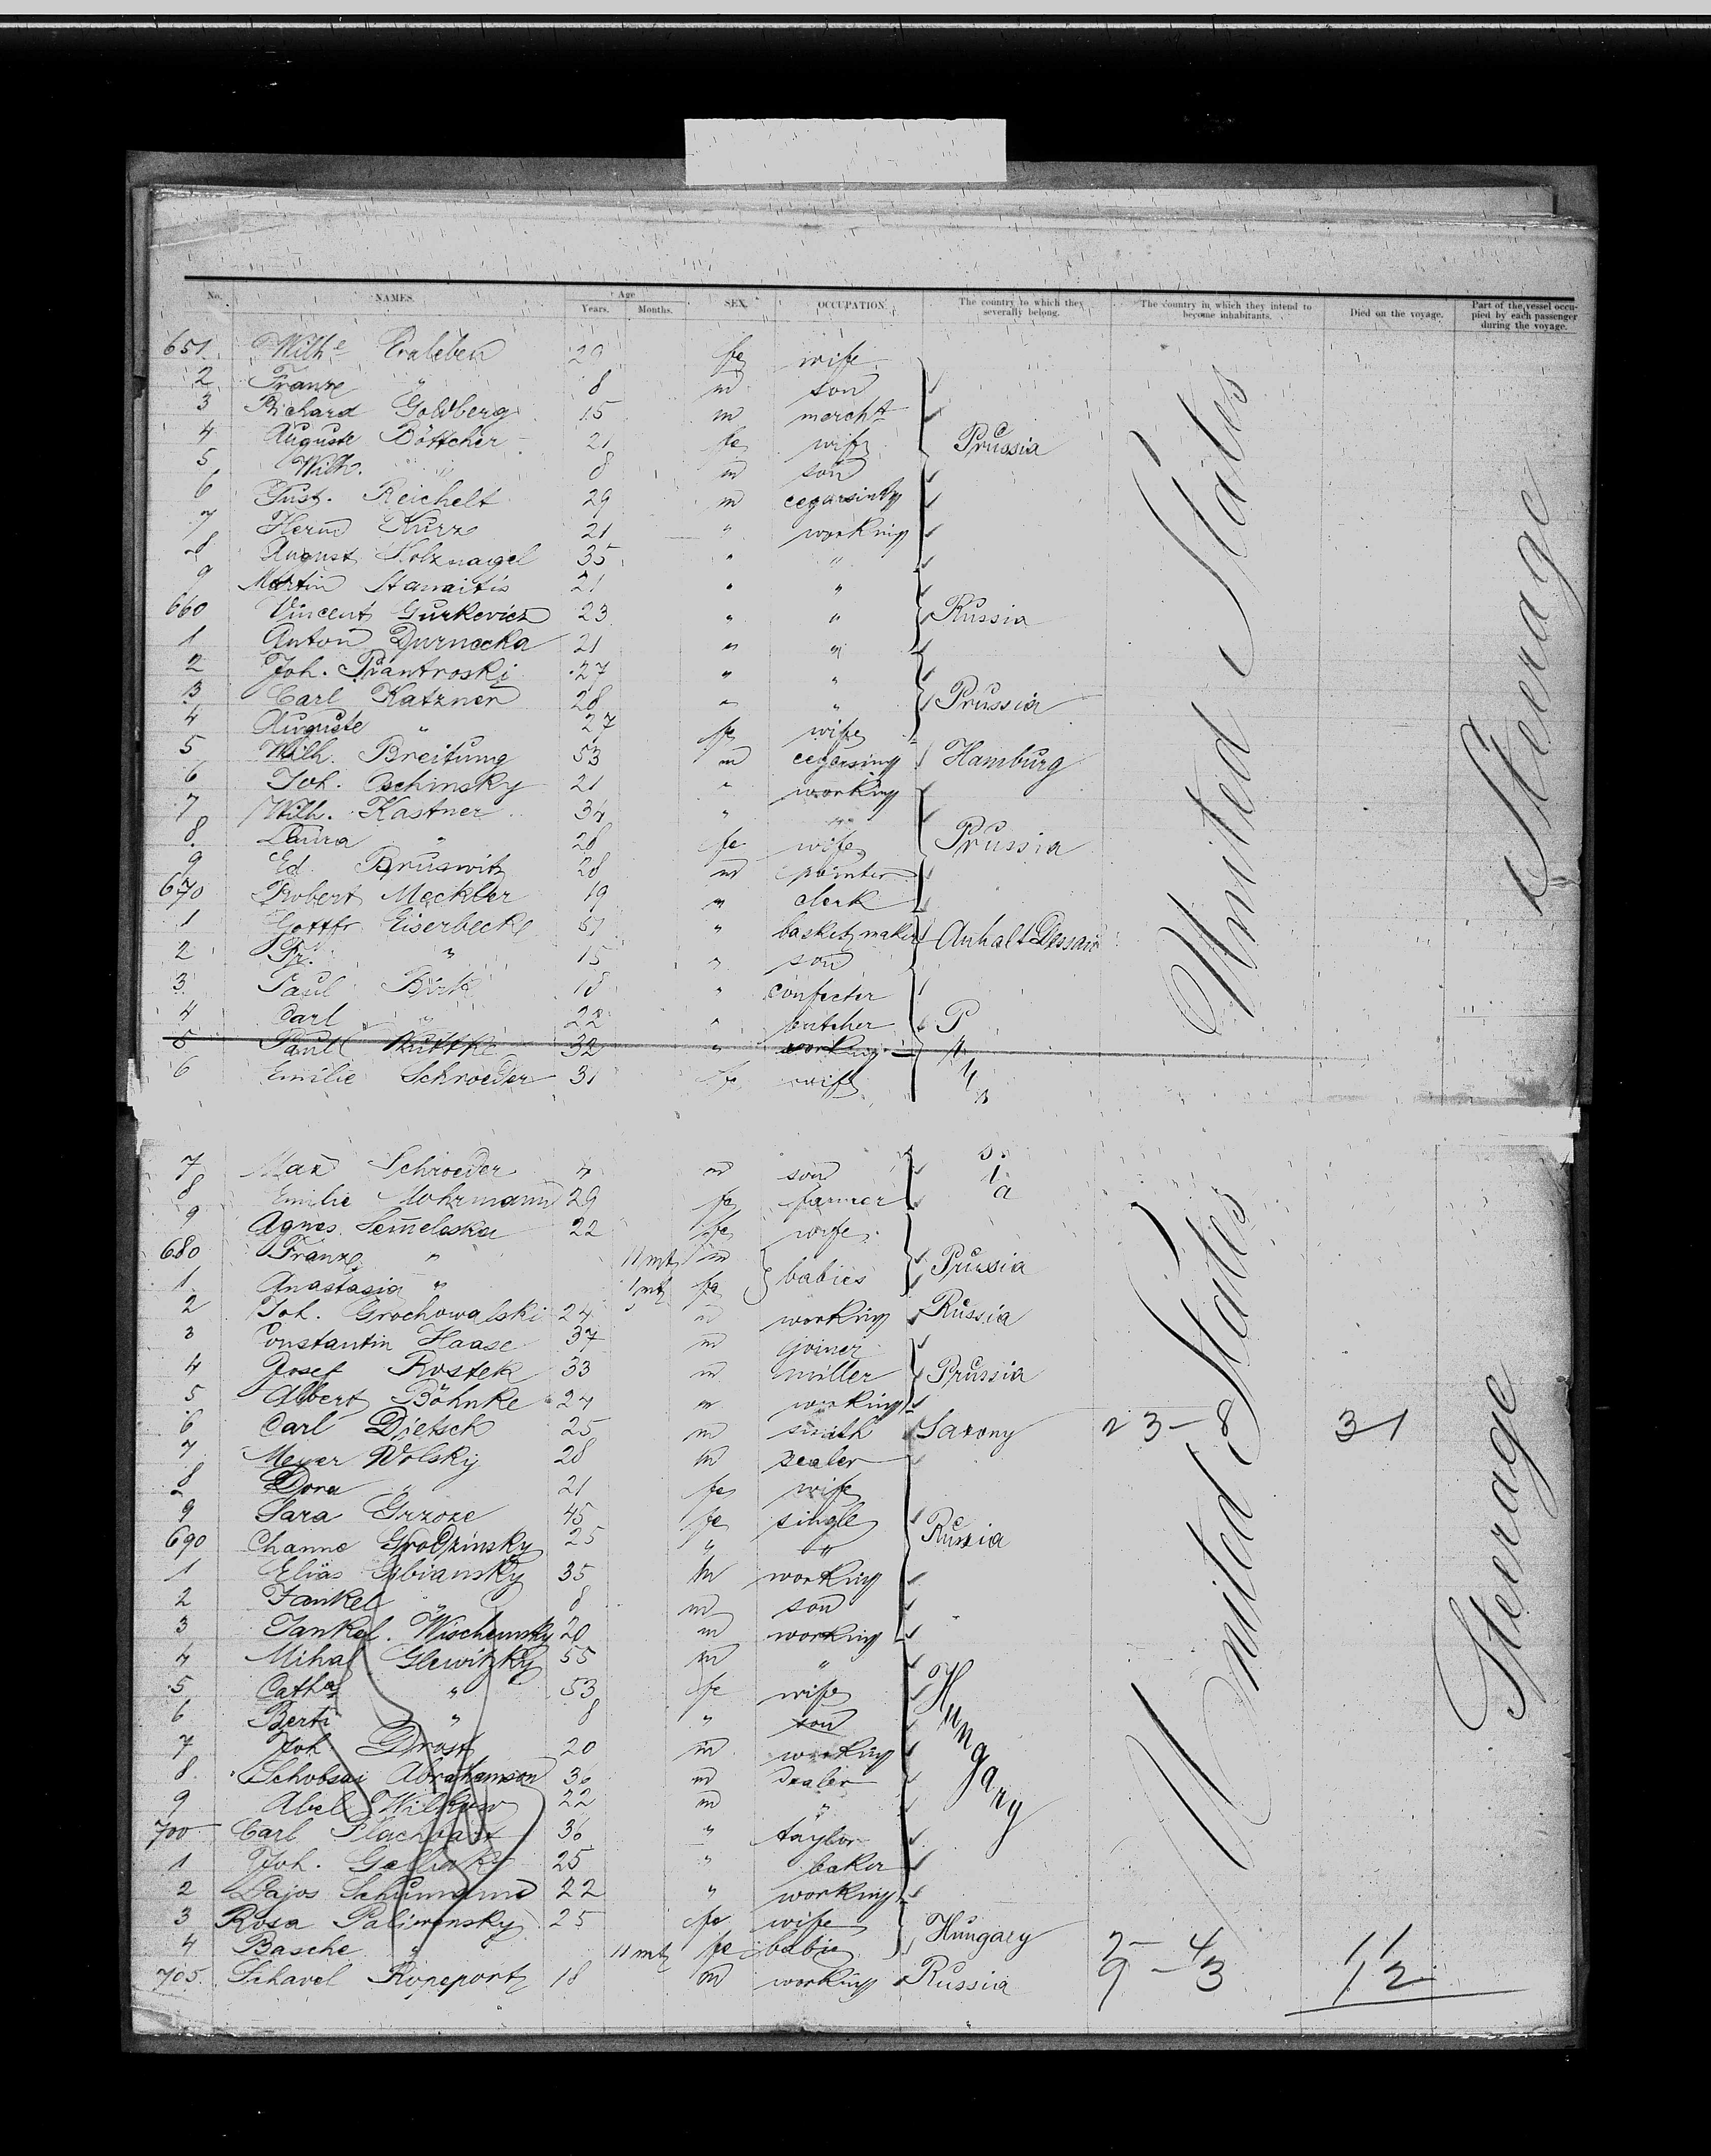 No. NAMES. Age Years. Months. SEX. OCCUPATION. The country to which they severally belong. The country in which they intend to become inhabitants. Died on the voyage. Part of the vessel occupied by each passenger during the voyage.
651 Wilhe Eraleben 29 fe wife
2 Franze " 8 m son
3 Richard Goldberg 15 m mercht
4 Auguste Böttcher 21 fe wife Prussia
5 Wilh. " 8 m son
6 Just. Reichelt 29 m
7 Herm Kurz 21 " working
8 August Holznagel 35 " "
9 Martin Stanaitis 21 " "
660 Vincent Gurkevicz 23 " " Russia
1 Anton Durnocka 21 " "
2 Joh. Piantroski 27 " "
3 Carl Katzner 28 " " Prussia
4 Auguste " 27 fe wife
5 Wilh. Breitung 53 m Hamburg
6 Joh. Oschinsky 21 " working
7 Wilh. Kastner 34 " "
8 Laura " 28 fe wife Prussia
9 Ed. Bruswitz 28 m painter
670 Robert Meckler 19 " clerk
1 Gottfr Eiserbeck 51 " basketmaker Anhalt Dessau
2 Fr. " 15 " son
3 Paul Birk 18 " confecter
4 Carl " 22 " butcher
5 Paul Wuttke 32 " working
6 Emilie Schroeder 31 fe wife Prussia
United States
Steerage
7 Max Schroeder 4 m son
8 Emilie Mohrmann 29 fe farmer
9 Agnes Semelaska 22 fe wife
680 Franze " 11 mt m babies Prussia
1 Anastasia " 1 mt fe
2 Joh. Grochowalski 24 m working Russia
3 Constantin Haase 37 m joiner
4 Josef Rostek 33 m miller Prussia
5 Albert Böhnke 24 m working
6 Carl Dietsch 25 m smith Saxony 23-8 31
7 Meyer Wolsky 28 m dealer
8 Dora " 21 fe wife
9 Sara Grzoze 45 fe single Russia
690 Channe Grodzinsky 25 " "
1 Elias Gobiansky 35 m working
2 Jankel " 8 m son
3 Jankel. Wischemsky 20 m working
4 Mihal Glewitzky 55 m "
5 Catha " 53 fe wife Hungary
6 Berti " 8 " son
7 Joh. Drost 20 m working
8 Schobsai Abrahamson 36 m dealer
9 Abel Wilkow 22 m "
700 Carl Plachbart 36 " taylor
1 Joh. Gallinky 25 " baker
2 Lajos Schumann 22 " working
3 Rosa Paliwensky 25 fe wife Hungary
4 Basche " 11 mt fe babie 2-4 11
705. Schavel Ropeport 18 m working Russia 9-3 12
United States
Steerage